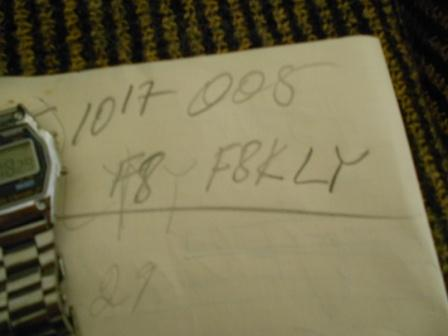 1017 005
F8 F8KLY
29